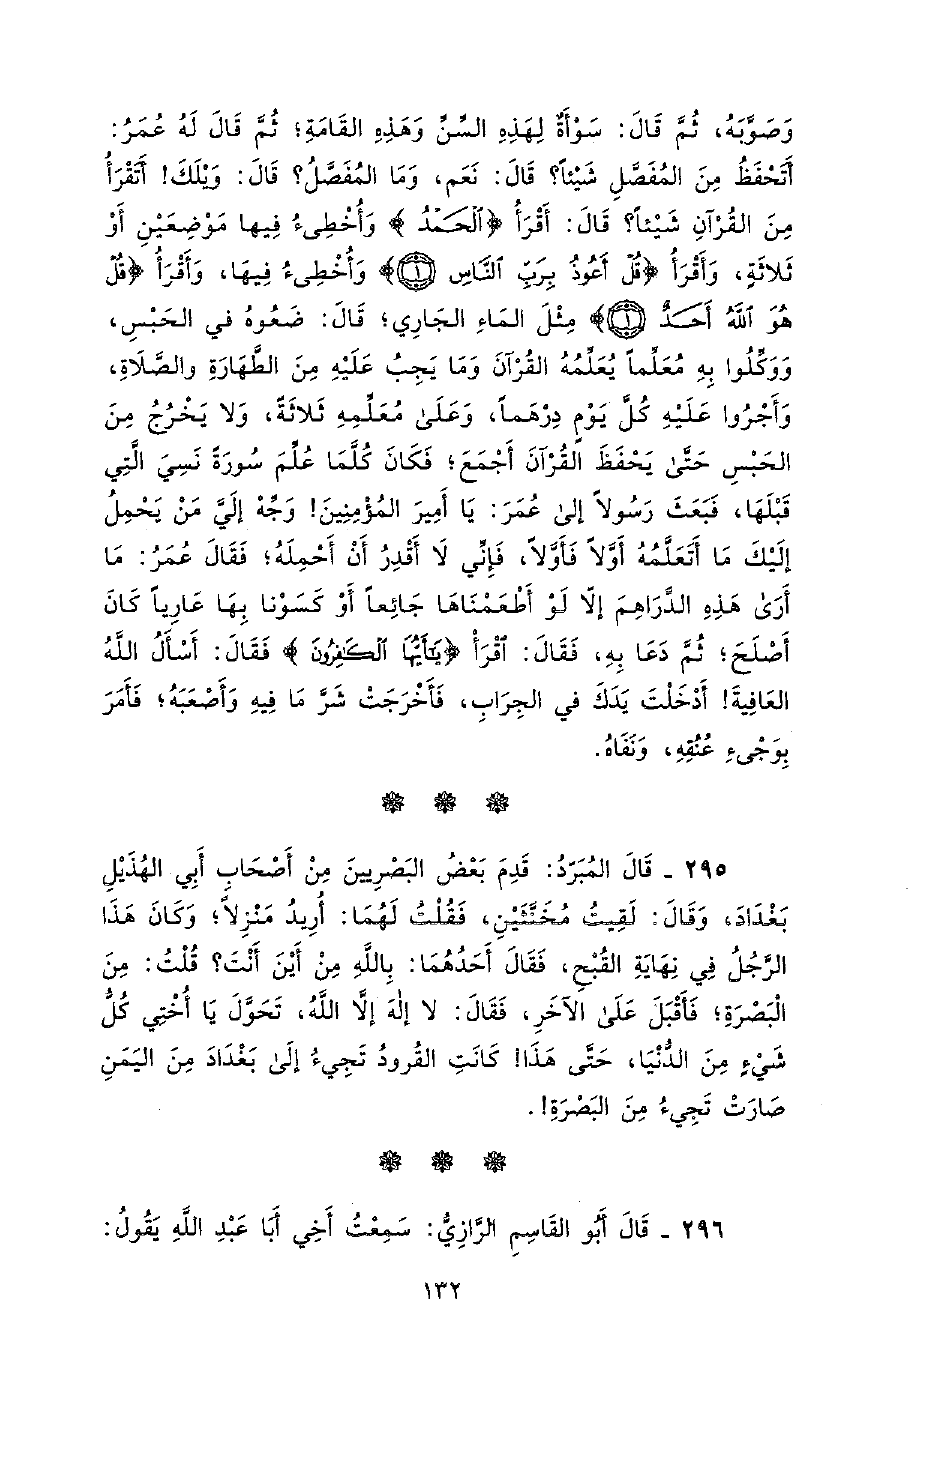 وَصَوَّبَهُ، ثُمَّ قَالَ: سَوْأَةٌ لِهَذِهِ السِّنِّ وَهَذِهِ القَامَةِ؛ ثُمَّ قَالَ لَهُ عُمَرُ:
أَتَحْفَظُ مِنَ المُفَصَّلِ شَيْئاً؟ قَالَ: نَعَم، وَمَا المُفَصَّلُ؟ قَالَ: وَيْلَكَ! أَتَقْرَأُ
مِنَ القُرْآنِ شَيْئاً؟ قَالَ: أَقْرَأُ ﴿ٱلْحَمْدُ﴾ وَأُخْطِىءُ فِيها مَوْضِعَيْنِ أَوْ
ثَلاثَةٍ، وَأَقْرَأُ ﴿قُلْ أَعُوذُ بِرَبِّ ٱلنَّاسِ ۝١﴾ وَأُخْطِىءُ فِيهَا، وَأَقْرَأُ ﴿قُلْ
هُوَ ٱللَّهُ أَحَدٌ ۝١﴾ مِثْلَ المَاءِ الجَارِي؛ قَالَ: ضَعُوهُ في الحَبْسِ،
وَوَكِّلُوا بِهِ مُعَلِّماً يُعَلِّمُهُ القُرْآنَ وَمَا يَجِبُ عَلَيْهِ مِنَ الطَّهَارَةِ والصَّلَاةِ،
وَأَجْرُوا عَلَيْهِ كُلَّ يَوْمٍ دِرْهَماً، وَعَلَىٰ مُعَلِّمِهِ ثَلاثَةً، وَلا يَخْرُجُ مِنَ
الحَبْسِ حَتَّىٰ يَحْفَظَ القُرْآنَ أَجْمَعَ؛ فَكَانَ كُلَّمَا عُلِّمَ سُورَةً نَسِيَ الَّتِي
قَبْلَهَا، فَبَعَثَ رَسُولاً إلىٰ عُمَرَ: يَا أَمِيرَ المُؤْمِنِينَ! وَجِّهْ إِلَيَّ مَنْ يَحْمِلُ
إِلَيْكَ مَا أَتَعَلَّمُهُ أَوَّلاً فَأَوَّلاً، فَإِنِّي لَا أَقْدِرُ أَنْ أَحْمِلَهُ؛ فَقَالَ عُمَرُ: مَا
أَرَىٰ هَذِهِ الدَّرَاهِمَ إلّا لَوْ أَطْعَمْنَاهَا جَائِعاً أَوْ كَسَوْنا بِهَا عَارِياً كَانَ
أَصْلَحَ؛ ثُمَّ دَعَا بِهِ، فَقَالَ: اقْرَأْ ﴿يَٰٓأَيُّهَا ٱلْكَٰفِرُونَ﴾ فَقَالَ: أَسْأَلُ اللَّهَ
العَافِيةَ! أَدْخَلْتَ يَدَكَ في الجِرَابِ، فَأَخْرَجَتْ شَرَّ مَا فِيهِ وَأَصْعَبَهُ؛ فَأَمَرَ
بِوَجْىءِ عُنُقِهِ، وَنَفَاهُ.
٢٩٥ ـ قَالَ المُبَرِّدُ: قَدِمَ بَعْضُ البَصْرِيينَ مِنْ أَصْحَابِ أَبِي الهُذَيْلِ
بَغْدَادَ، وَقَالَ: لَقِيتُ مُخَنَّثَيْنِ، فَقُلْتُ لَهُمَا: أُرِيدُ مَنْزِلاً؛ وَكَانَ هَذَا
الرَّجُلُ فِي نِهَايَةِ القُبْحِ، فَقَالَ أَحَدُهُمَا: بِاللَّهِ مِنْ أَيْنَ أَنْتَ؟ قُلْتُ: مِنَ
الْبَصْرَةِ؛ فَأَقْبَلَ عَلَىٰ الآخَرِ، فَقَالَ: لا إلٰهَ إلَّا اللَّهُ، تَحَوَّلَ يَا أُخْتِي كُلُّ
شَيْءٍ مِنَ الدُّنْيَا، حَتَّى هَذَا! كَانَتِ القُرودُ تَجِيءُ إلَىٰ بَغْدَادَ مِنَ اليَمَنِ
صَارَتْ تَجِيءُ مِنَ البَصْرَةِ!.
٢٩٦ ـ قَالَ أَبُو القَاسِمِ الرَّازِيُّ: سَمِعْتُ أَخِي أَبَا عَبْدِ اللَّهِ يَقُولُ:
١٣٢